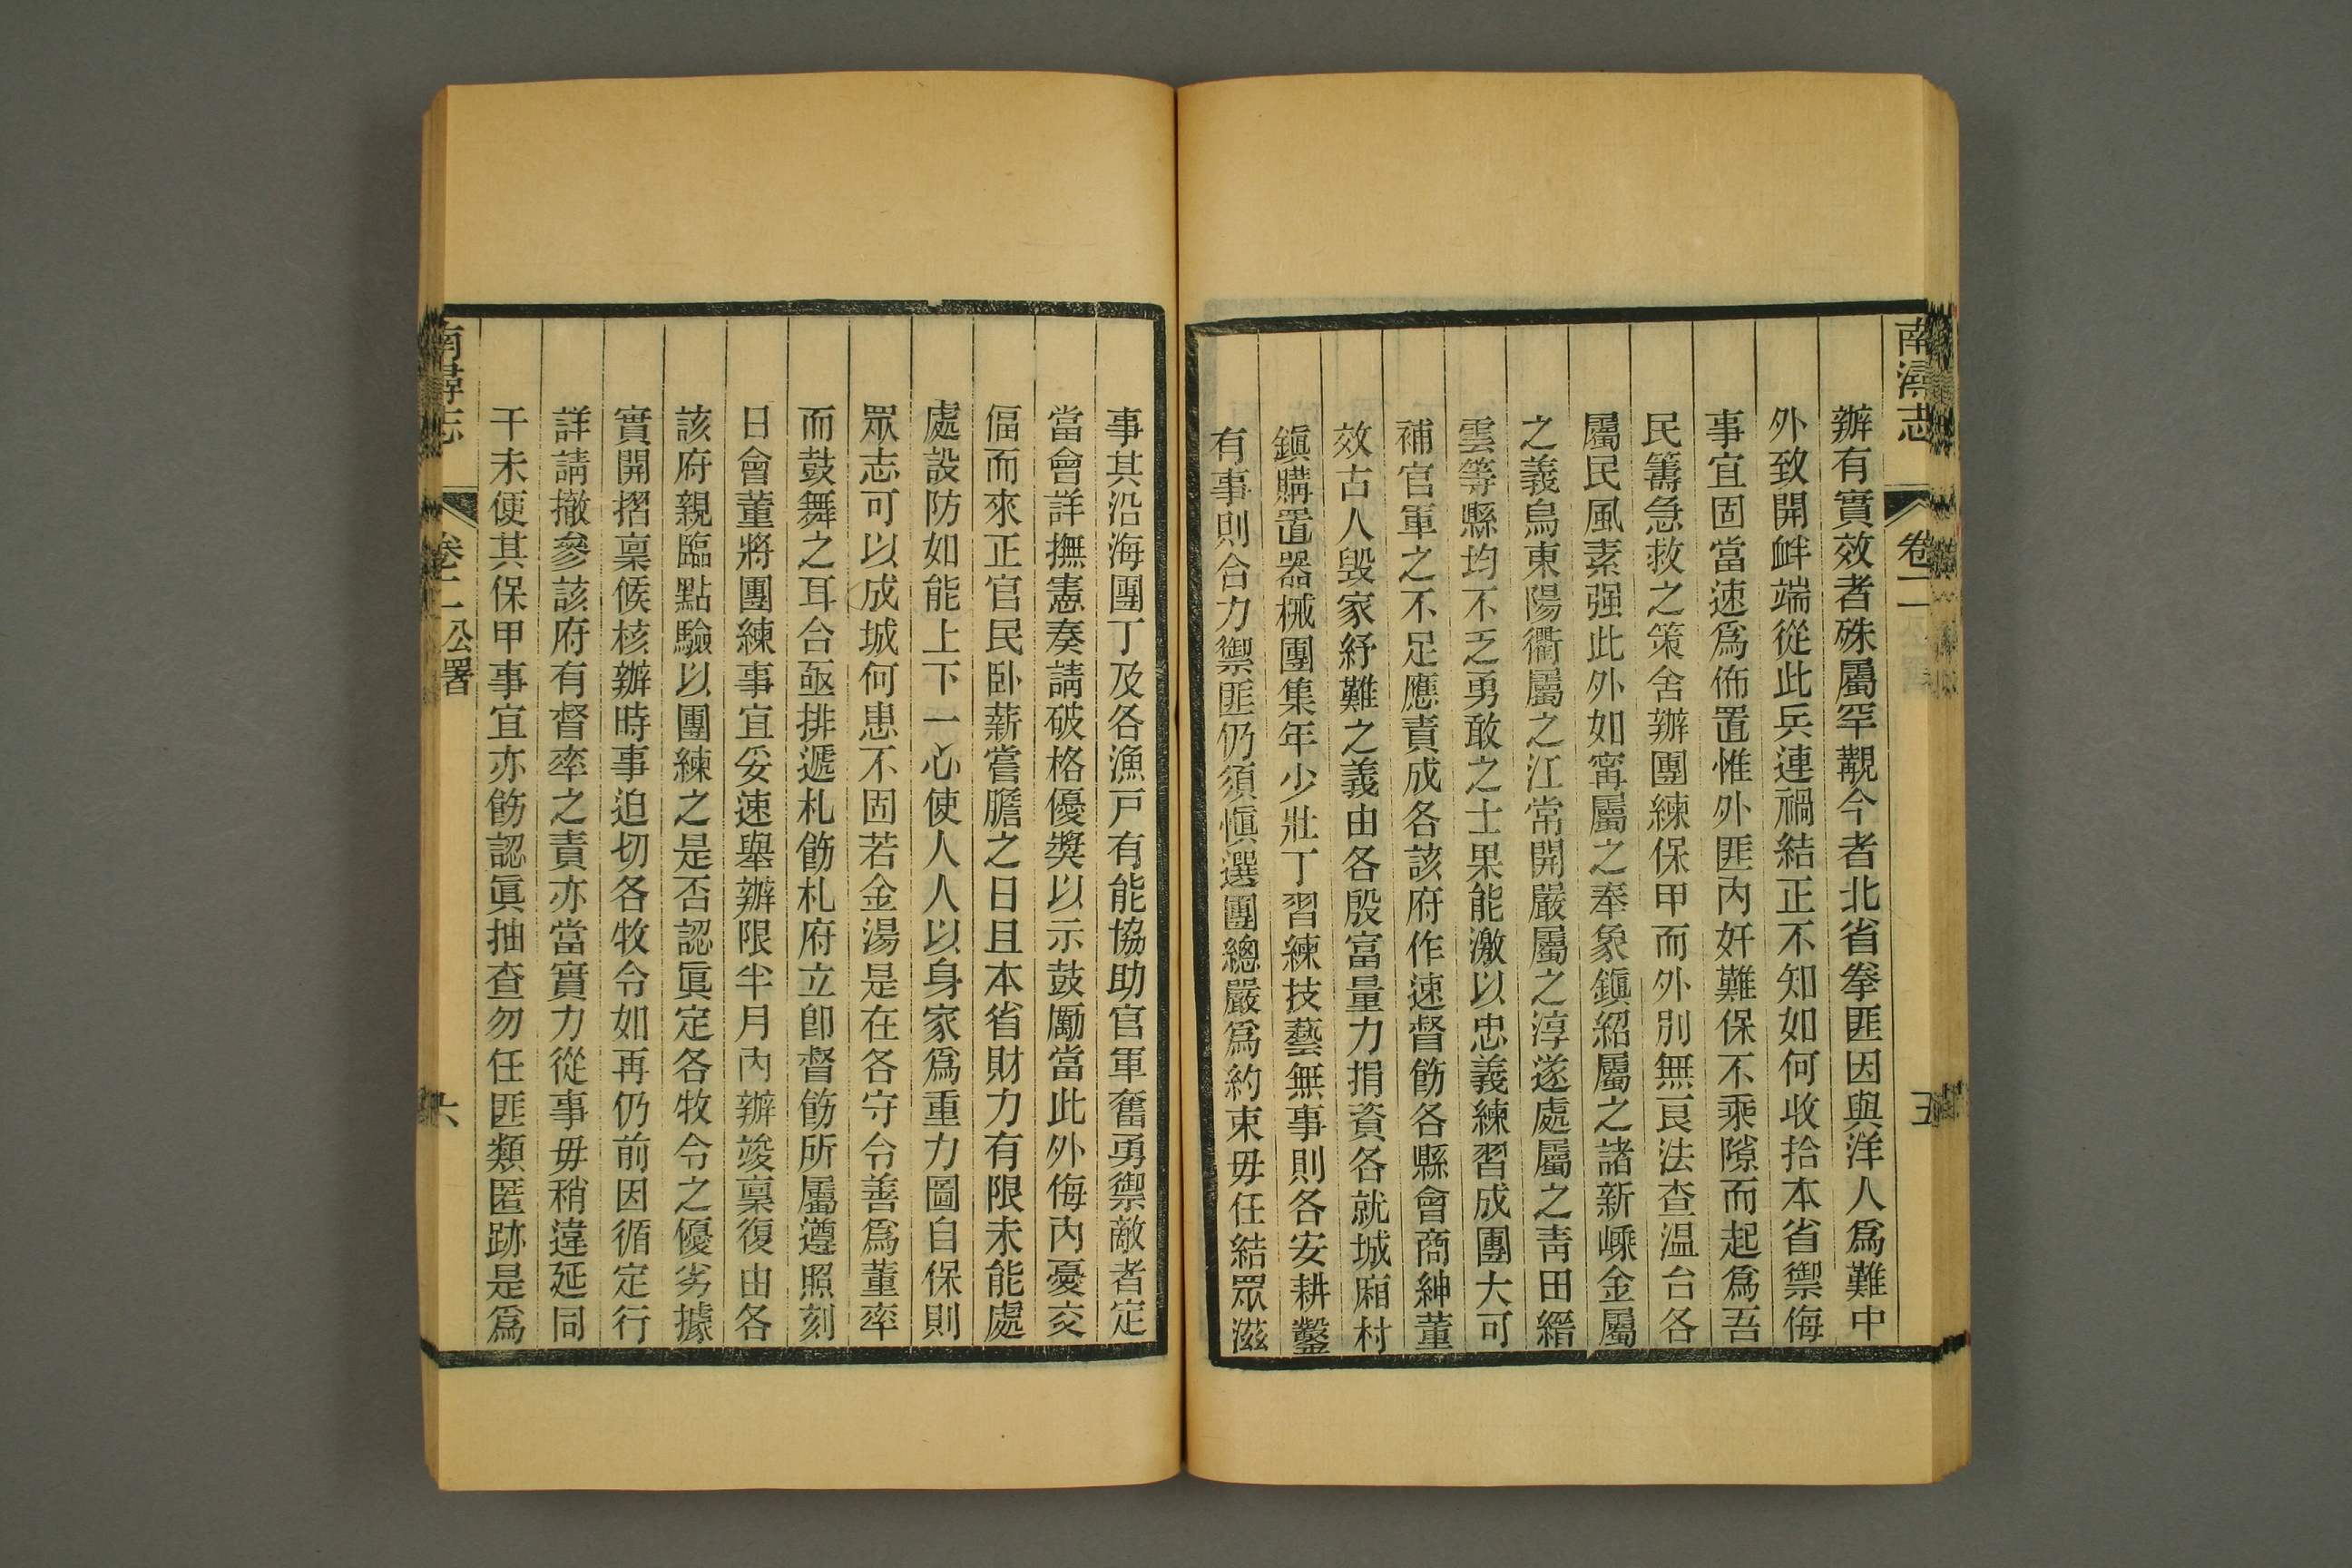 南潯志 卷二 五
辦有實效者硃屬罕觀今者北省拳匪因與洋人爲難中
外致開衅端從此兵連禍結正不知如何收拾本省禦侮
事宜固當速爲佈置惟外匪內奸難保不乘隙而起爲吾
民籌急救之策舍辦團練保甲而外別無良法查温台各
屬民風素强此外如甯屬之奉象鎭紹屬之諸新嵊金屬
之義烏東陽衢屬之江常開嚴屬之淳遂處屬之靑田縉
雲等縣均不乏勇敢之士果能激以忠義練習成團大可
補官軍之不足應責成各該府作速督飭各縣會商紳董
效古人毀家紓難之義由各殷富量力捐資各就城廂村
鎭購置器械團集年少壯丁習練技藝無事則各安耕鑿
有事則合力禦匪仍須愼選團總嚴爲約束毋任結眾滋
事其沿海團丁及各漁戸有能協助官軍奮勇禦敵者定
當會詳撫憲奏請破格優獎以示鼓勵當此外侮內憂交
偪而來正官民卧薪嘗膽之日且本省財力有限未能處
處設防如能上下一心使人人以身家爲重力圖自保則
眾志可以成城何患不固若金湯是在各守令善爲董率
而鼓舞之耳合亟排遞札飭札府立卽督飭所屬遵照刻
日會董將團練事宜妥速舉辦限半月內辦竣稟復由各
該府親臨點驗以團練之是否認眞定各牧令之優劣據
實開摺稟候核辦時事迫切各牧令如再仍前因循定行
詳請撤參該府有督率之責亦當實力從事毋稍違延同
干未便其保甲事宜亦飭認眞抽查勿任匪類匿跡是爲
南潯志 卷二 公署 六